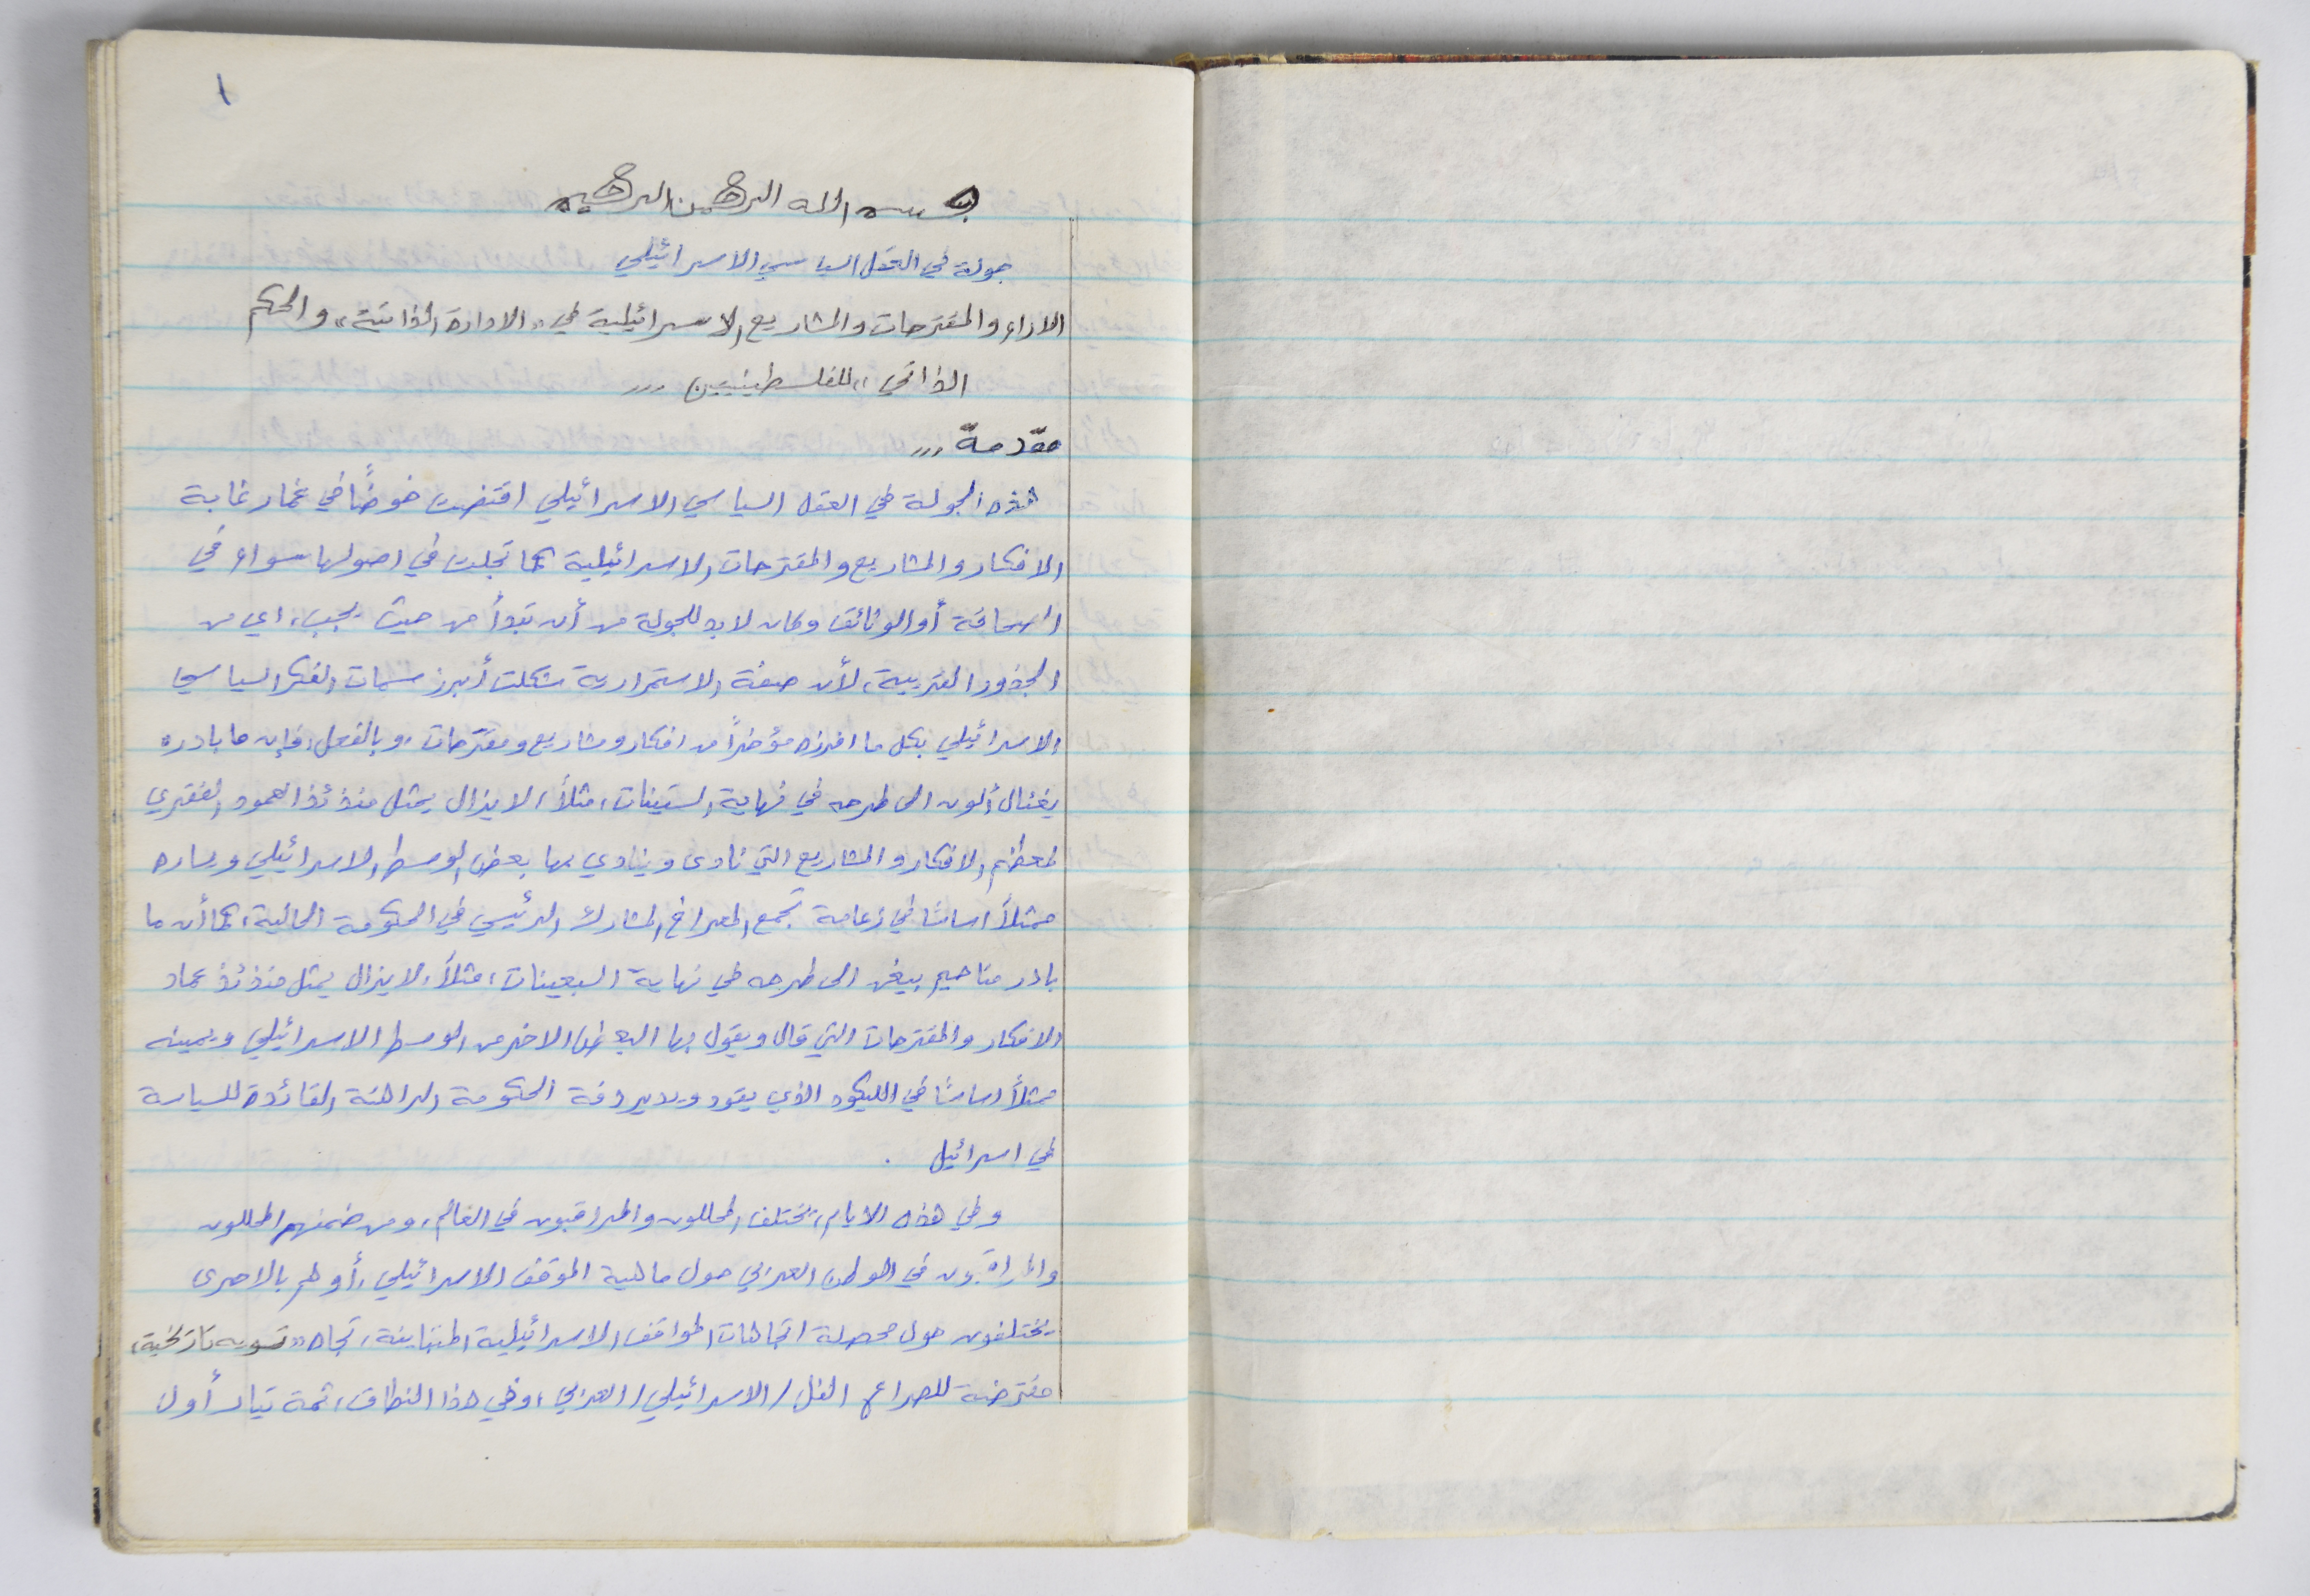 ١
بسم الله الرحمن الرحيم
جولة في العقل السياسي الاسرائيلي
الاراء والمقترحات والمشاريع الاسرائيلية في «الادارة الذاتية» والحكم
الذاتي» للفلسطينيين ...
مقدمة ...
هذه الجولة في العقل السياسي الاسرائيلي اقتضت خوضًا في غمار غابة
الافكار والمشاريع والمقترحات الاسرائيلية كما تجلت في اصولها سواء في
الصحافة أو الوثائق وكان لابد للجولة من أن تبدأ من حيث يجب، اي من
الجذور القريبة، لأن صفة الاستمرارية شكلت أبرز سمات الفكر السياسي
الاسرائيلي بكل ما افرزه مؤخراً من افكار ومشاريع ومقترحات، وبالفعل، فإن ما بادره
يغئال ألون الى طرحه في نهاية الستينات، مثلاً، لا يزال يمثل منذئذ العمود الفقري
لمعظم الافكار والمشاريع التي نادى وينادي بها بعض الوسط الاسرائيلي ويساره
ممثلاً اساسًا في زعامة تجمع المعراخ المشارك الرئيسي في الحكومة الحالية، كما أن ما
بادر مناحيم بيغن الى طرحه في نهاية السبعينات، مثلاً، لا يزال يمثل منذئذ عماد
الافكار والمقترحات التي قال ويقول بها البعض الاخر من الوسط الاسرائيلي ويمينه
ممثلاً اساسًا في الليكود الذي يقود ويدير دفة الحكومة الراهنة القائدة للسياسة
في اسرائيل .
وفي هذه الايام، يختلف المحللون والمراقبون في العالم، ومن ضمنهم المحللون
والمراقبون في الوطن العربي حول ماهية الموقف الاسرائيلي، أو هم بالاحرى
يختلفون حول محصلة اتجاهات المواقف الاسرائيلية المتباينة، تجاه «تسويه تاريخية»
مفترضة للصراع الفل/الاسرائيلي/العربي، وفي هذا النطاق، ثمة تيار أول